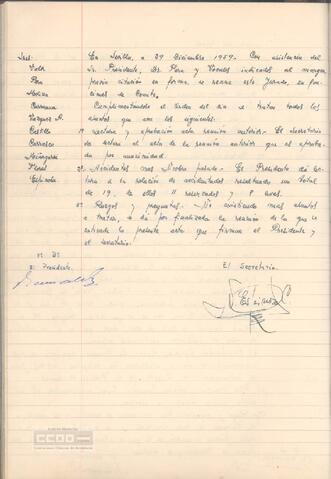 Sres. En Sevilla, a 29 Diciembre 1959. Con asistencia del
Sr. Presidente, Sr. Pera y Vocales indicados al margen
Pera previa citación en forma, se reune este Jurado, en fun-
Molina ciones de Comité,
Carmona Cumplimentándose el orden del día se tratan todos los
Vazquez A. asuntos que son los siguientes:
Castillo 1º Lectura y aprobación acta reunión anterior. - El Secretario
Carrasco da lectura al acta de la reunión anterior que es aproba-
da por unanimidad.
2º Accidentes mes Nvobre pasado. - El Presidente da lec-
Espinola tura a la relación de accidentados resultando un total
de 19, de ellos 11 reservados y 8 leves.
3º Ruegos y preguntas. - No existiendo mas asuntos
a tratar, se da por finalizada la reunión de la que se
extiende la presente acta que firman el Presidente y
el Secretario.
Vº Bº
El Presidente El Secretario
CCOO